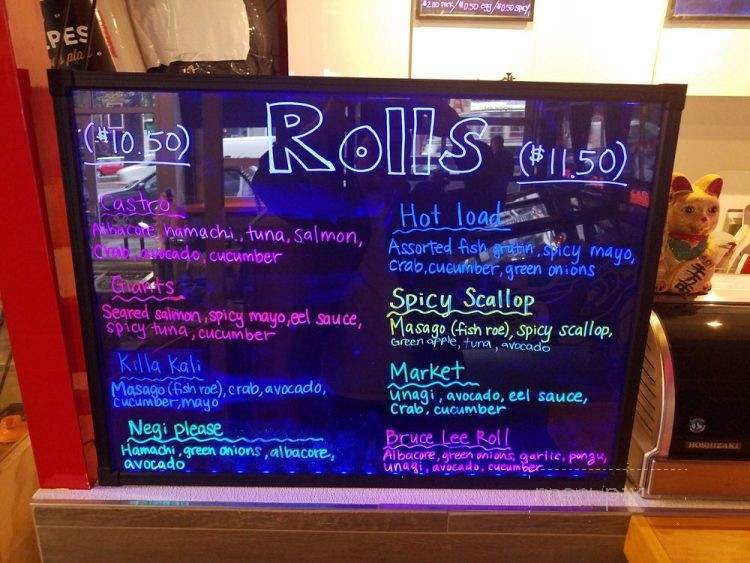 $2.00 pork/$0.50 egg/$0.50 spicy
Rolls
($10.50)
Castro
Albacore, hamachi, tuna, salmon,
Crab, avocado, cucumber
Giants
Seared salmon, spicy mayo, eel sauce,
spicy tuna, cucumber
Killa Kali
Masago (fish roe), crab, avocado,
cucumber, mayo
Negi please
Hamachi, green onions, albacore,
avocado
($11.50)
Hot load
Assorted fish gratin, spicy mayo,
crab, cucumber, green onions
Spicy Scallop
Masago (fish roe), spicy scallop,
Green apple, tuna, avocado
Market
Unagi, avocado, eel sauce,
Crab, cucumber
Bruce Lee Roll
Albacore, green onions, garlic, ponzu,
unagi, avocado, cucumber
HOSHIZAKI